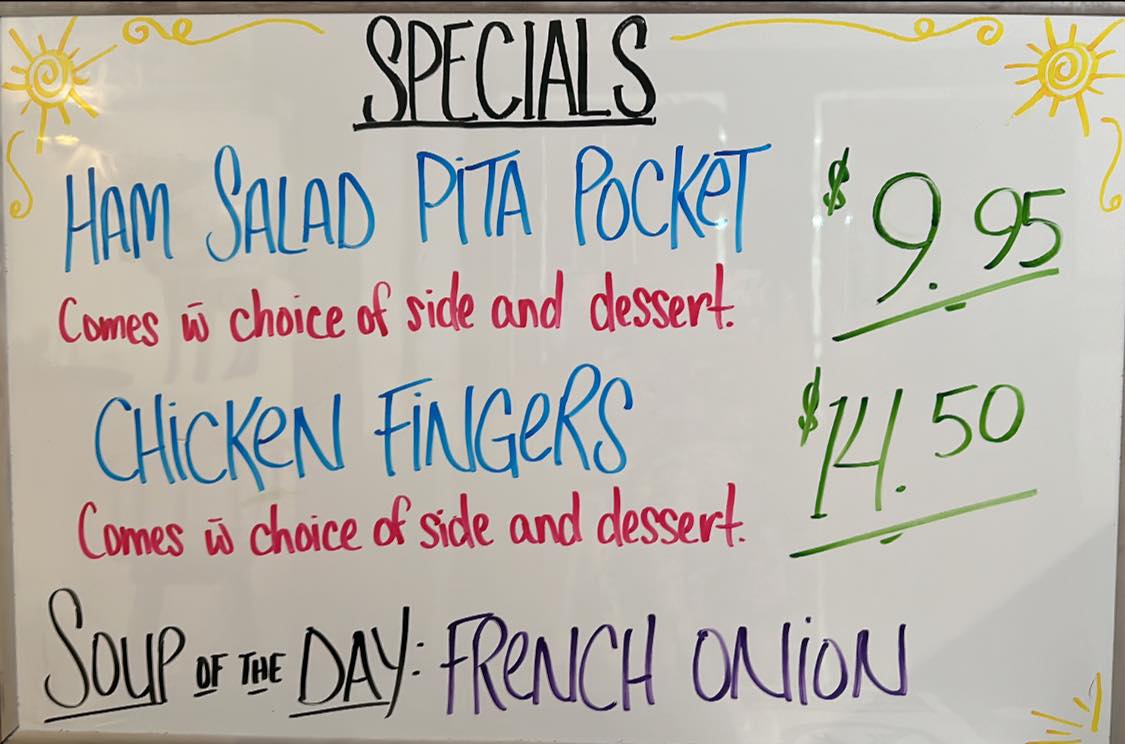 SPECIALS
HAM SALAD PiTA POCKeT $9.95
Comes w̄ choice of side and dessert.
CHiCKeN FiNGeRS $14.50
Comes w̄ choice of side and dessert.
SOUP OF THE DAY: FReNCH ONiON